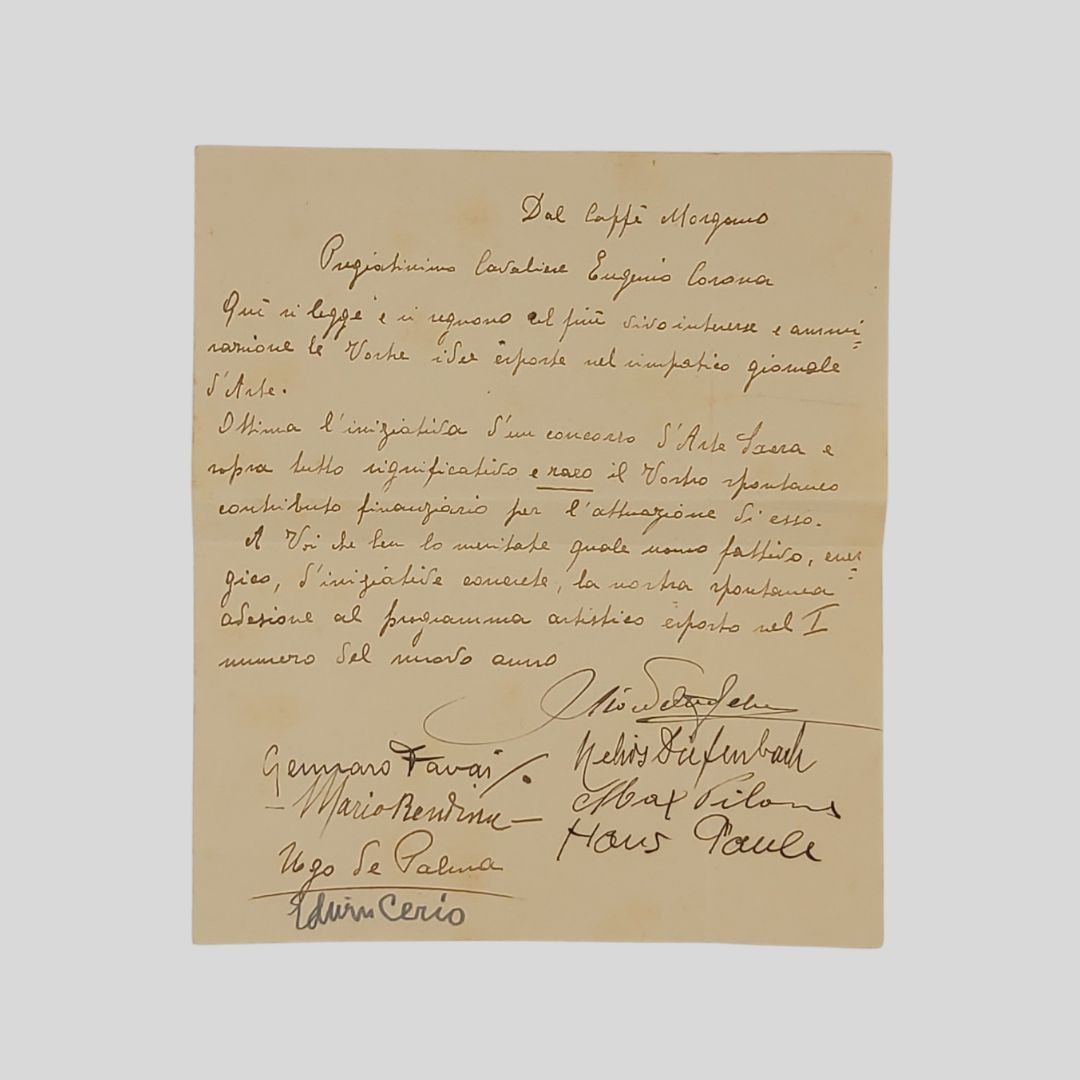 Dal Caffè Morgano
Pregiatissimo Cavaliere Eugenio Corona
Quì si legge e si seguono col più vivo interesse e ammi=
razione le Vostre idee esposte nel simpatico giornale
d'Arte.
Ottima l'iniziativa d'un concorso d'Arte Sacra e
sopra tutto significativo e raro il Vostro spontaneo
contributo finanziario per l'attuazione di esso.
A Voi che ben lo meritate quale uomo fattivo, ener=
gico, d'iniziative concrete, la nostra spontanea
adesione al programma artistico esposto nel I
numero del nuovo anno
Gennaro Favai
Mario
Ugo de Palma
Edwin Cerio
Diefenbach
Max
Hans Paule